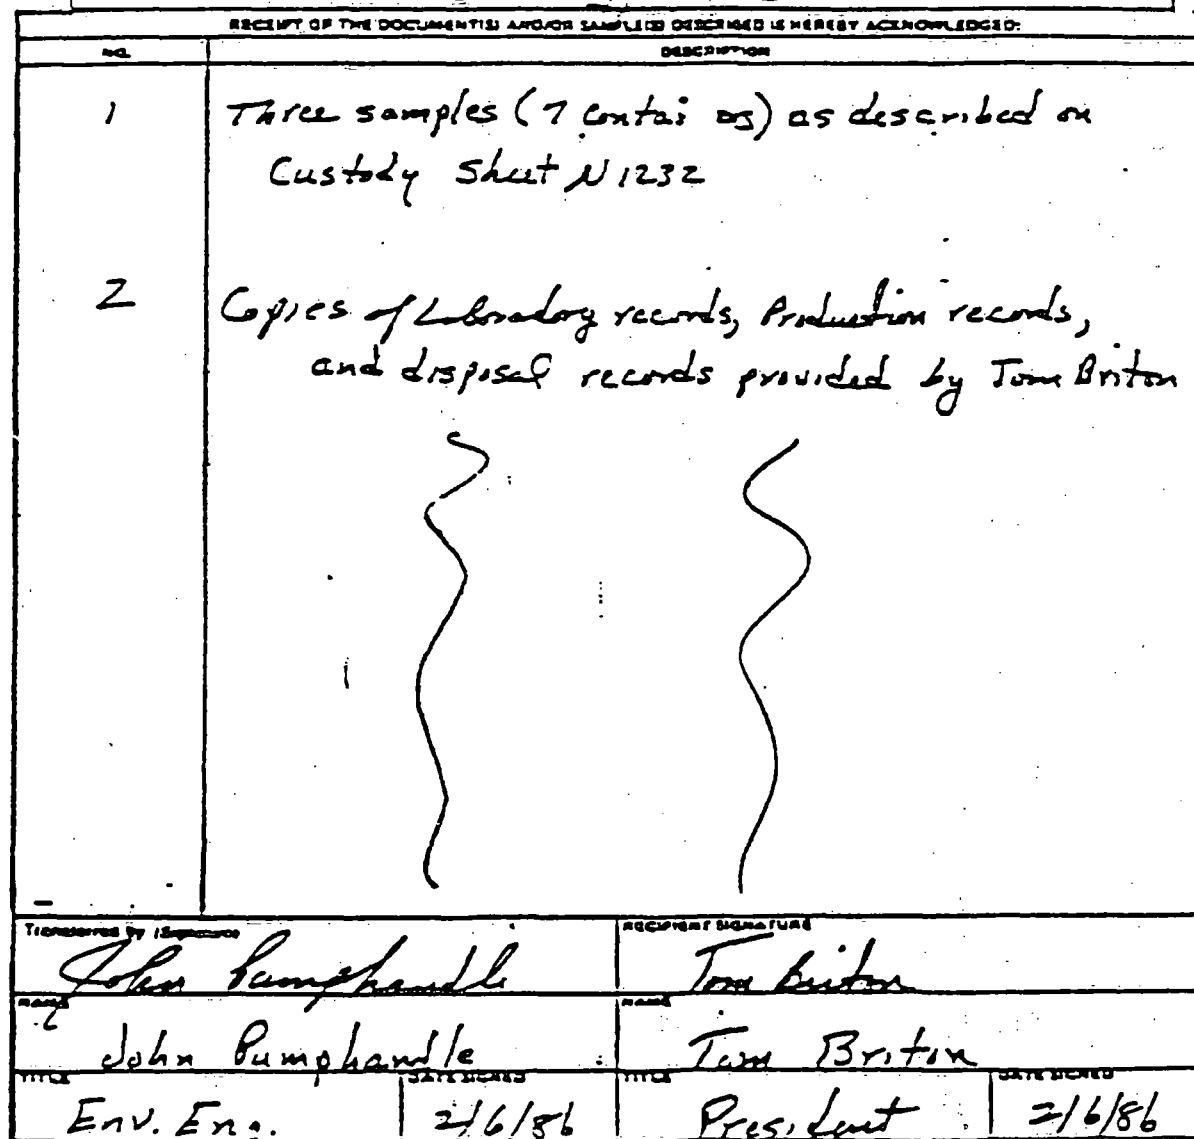 RECEIPT OF THE DOCUMENT(S) AND/OR SAMPLE(S) DESCRIBED IS HEREBY ACKNOWLEDGED:
NO. DESCRIPTION
1 Three samples (7 contai s) as described on
Custody Sheet N1232
2 Copies of Laboratory records, Production records,
and disposal records provided by Tom Briton
Transferred by (Signature) RECIPIENT SIGNATURE
John Pumphandle Tom Briton
NAME NAME
John Pumphandle Tom Briton
TITLE DATE SIGNED TITLE DATE SIGNED
Env. Eng. 2/6/86 President 2/6/86